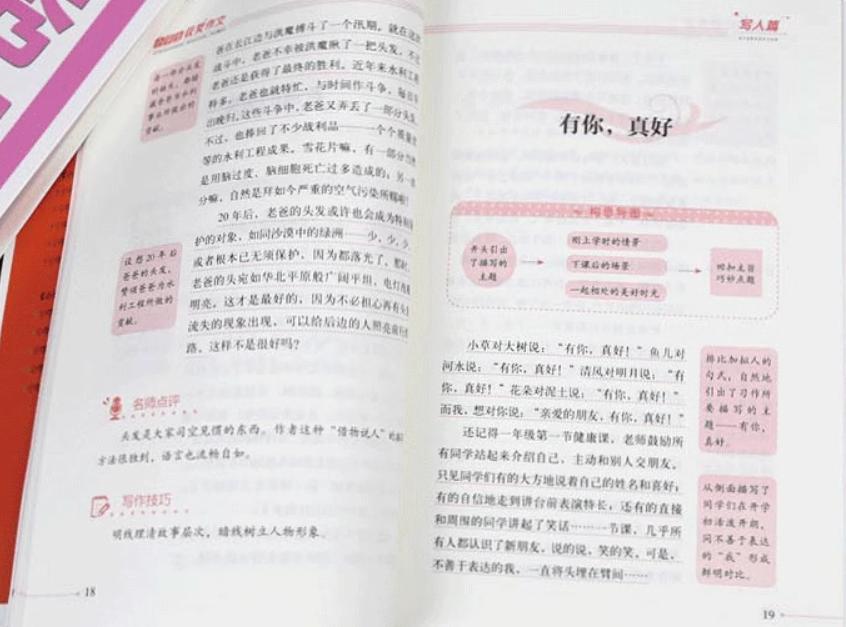 获奖作文
爸在长江边与洪魔搏斗了一个汛期，就在这次
战斗中，老爸不幸被洪魔揪了一把头发，不过
老爸还是获得了最终的胜利。近年来水利工程
特多，老爸也就特忙，与时间作斗争，每日早
出晚归，这些斗争中，老爸又弄丢了一部分头发，
不过，也捧回了不少战利品——一个个质量优
等的水利工程成果。雪花片嘛，有一部分当然
是用脑过度、脑细胞死亡过多造成的；另一部
分嘛，自然是拜如今严重的空气污染所赐啦！
20年后，老爸的头发或许也会成为特别保
护的对象，如同沙漠中的绿洲——少，少，少，
或者根本已无须保护，因为都落光了。那时，
老爸的头宛如华北平原般广阔平坦，电灯般
明亮。这才是最好的，因为不必担心再有头发
流失的现象出现，可以给后边的人照亮前行的
路。这样不是很好吗？
设想20年后
爸爸的头发，
赞颂爸爸为水
利工程所做的
贡献。
名师点评
头发是大家司空见惯的东西，作者这种“借物说人”的
方法很独到，语言也流畅自如。
写作技巧
明线理清故事层次，暗线树立人物形象。
18
写人篇
有你，真好
构思导图
开头引出
了描写的
主题
刚上学时的情景
下课后的场景
一起相处的美好时光
照扣主旨
巧妙点题
小草对大树说：“有你，真好！”鱼儿对
河水说：“有你，真好！”清风对明月说：“有
你，真好！”花朵对泥土说：“有你，真好！”
而我，想对你说：“亲爱的朋友，有你，真好！”
还记得一年级第一节健康课，老师鼓励所
有同学站起来介绍自己，主动和别人交朋友。
只见同学们有的大方地说着自己的姓名和喜好；
有的自信地走到讲台前表演特长，还有的直接
和周围的同学讲起了笑话……一节课，几乎所
有人都认识了新朋友，说的说，笑的笑，可是，
不善于表达的我，一直将头埋在臂间……
排比加拟人的
句式，自然地
引出了习作所
要描写的主
题——有你，
真好。
从侧面描写了
同学们在开学
初活泼开朗，
同不善于表达
的“我”形成
鲜明对比。
19